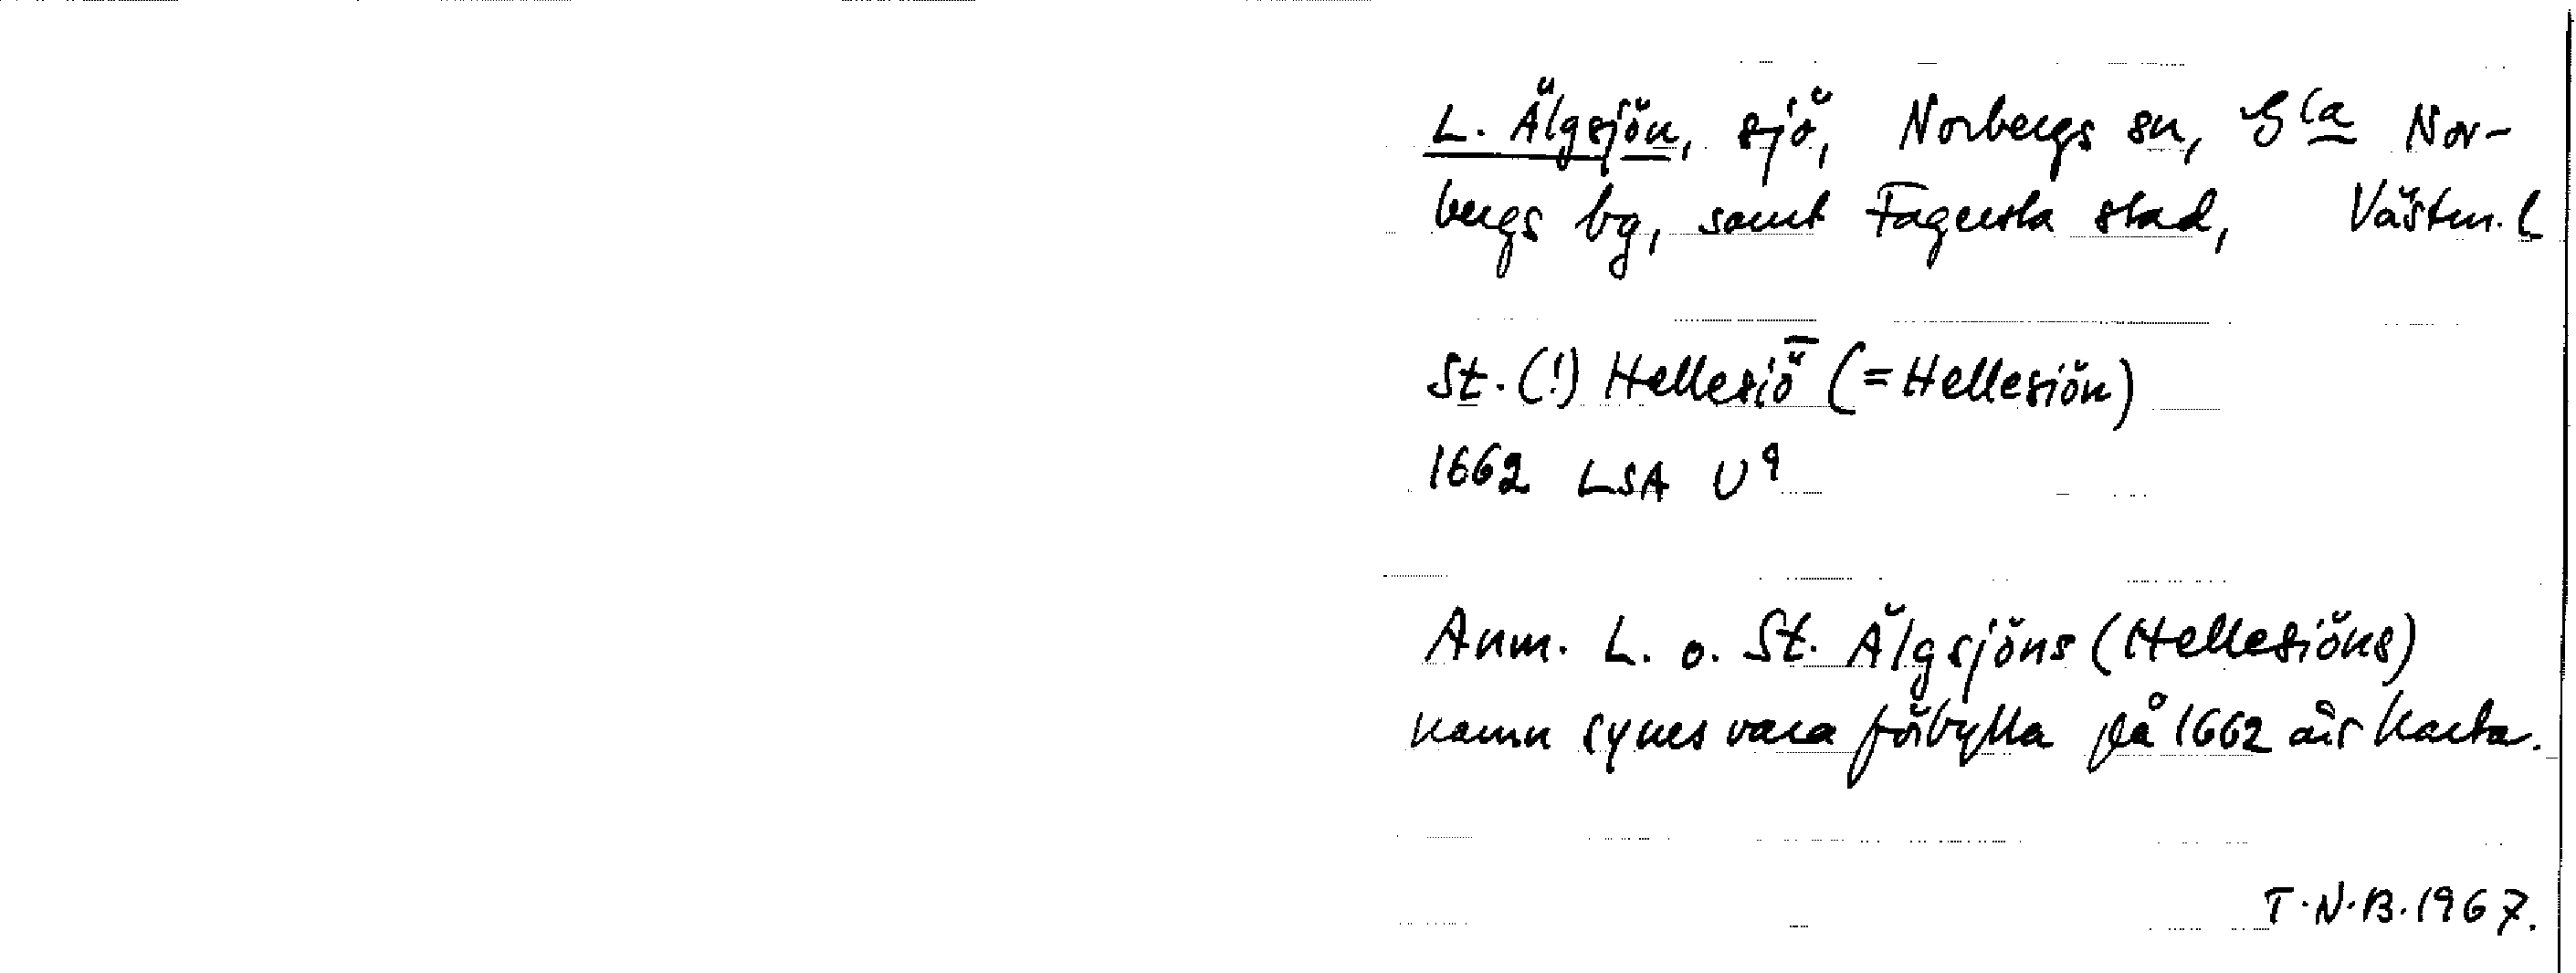 L. Älgsjön, sjö, Norbergs sn, G:la Nor-
bergs bg, samt Fagersta stad, Västm. l
St. (!) Hellesiö̅ (= Hellesiön)
1662 LSA U9
Anm. L. o. St. Älgsjöns (Hellesiöns)
namn synes vara förbytta på 1662 års karta.
T.N.B. 1967.